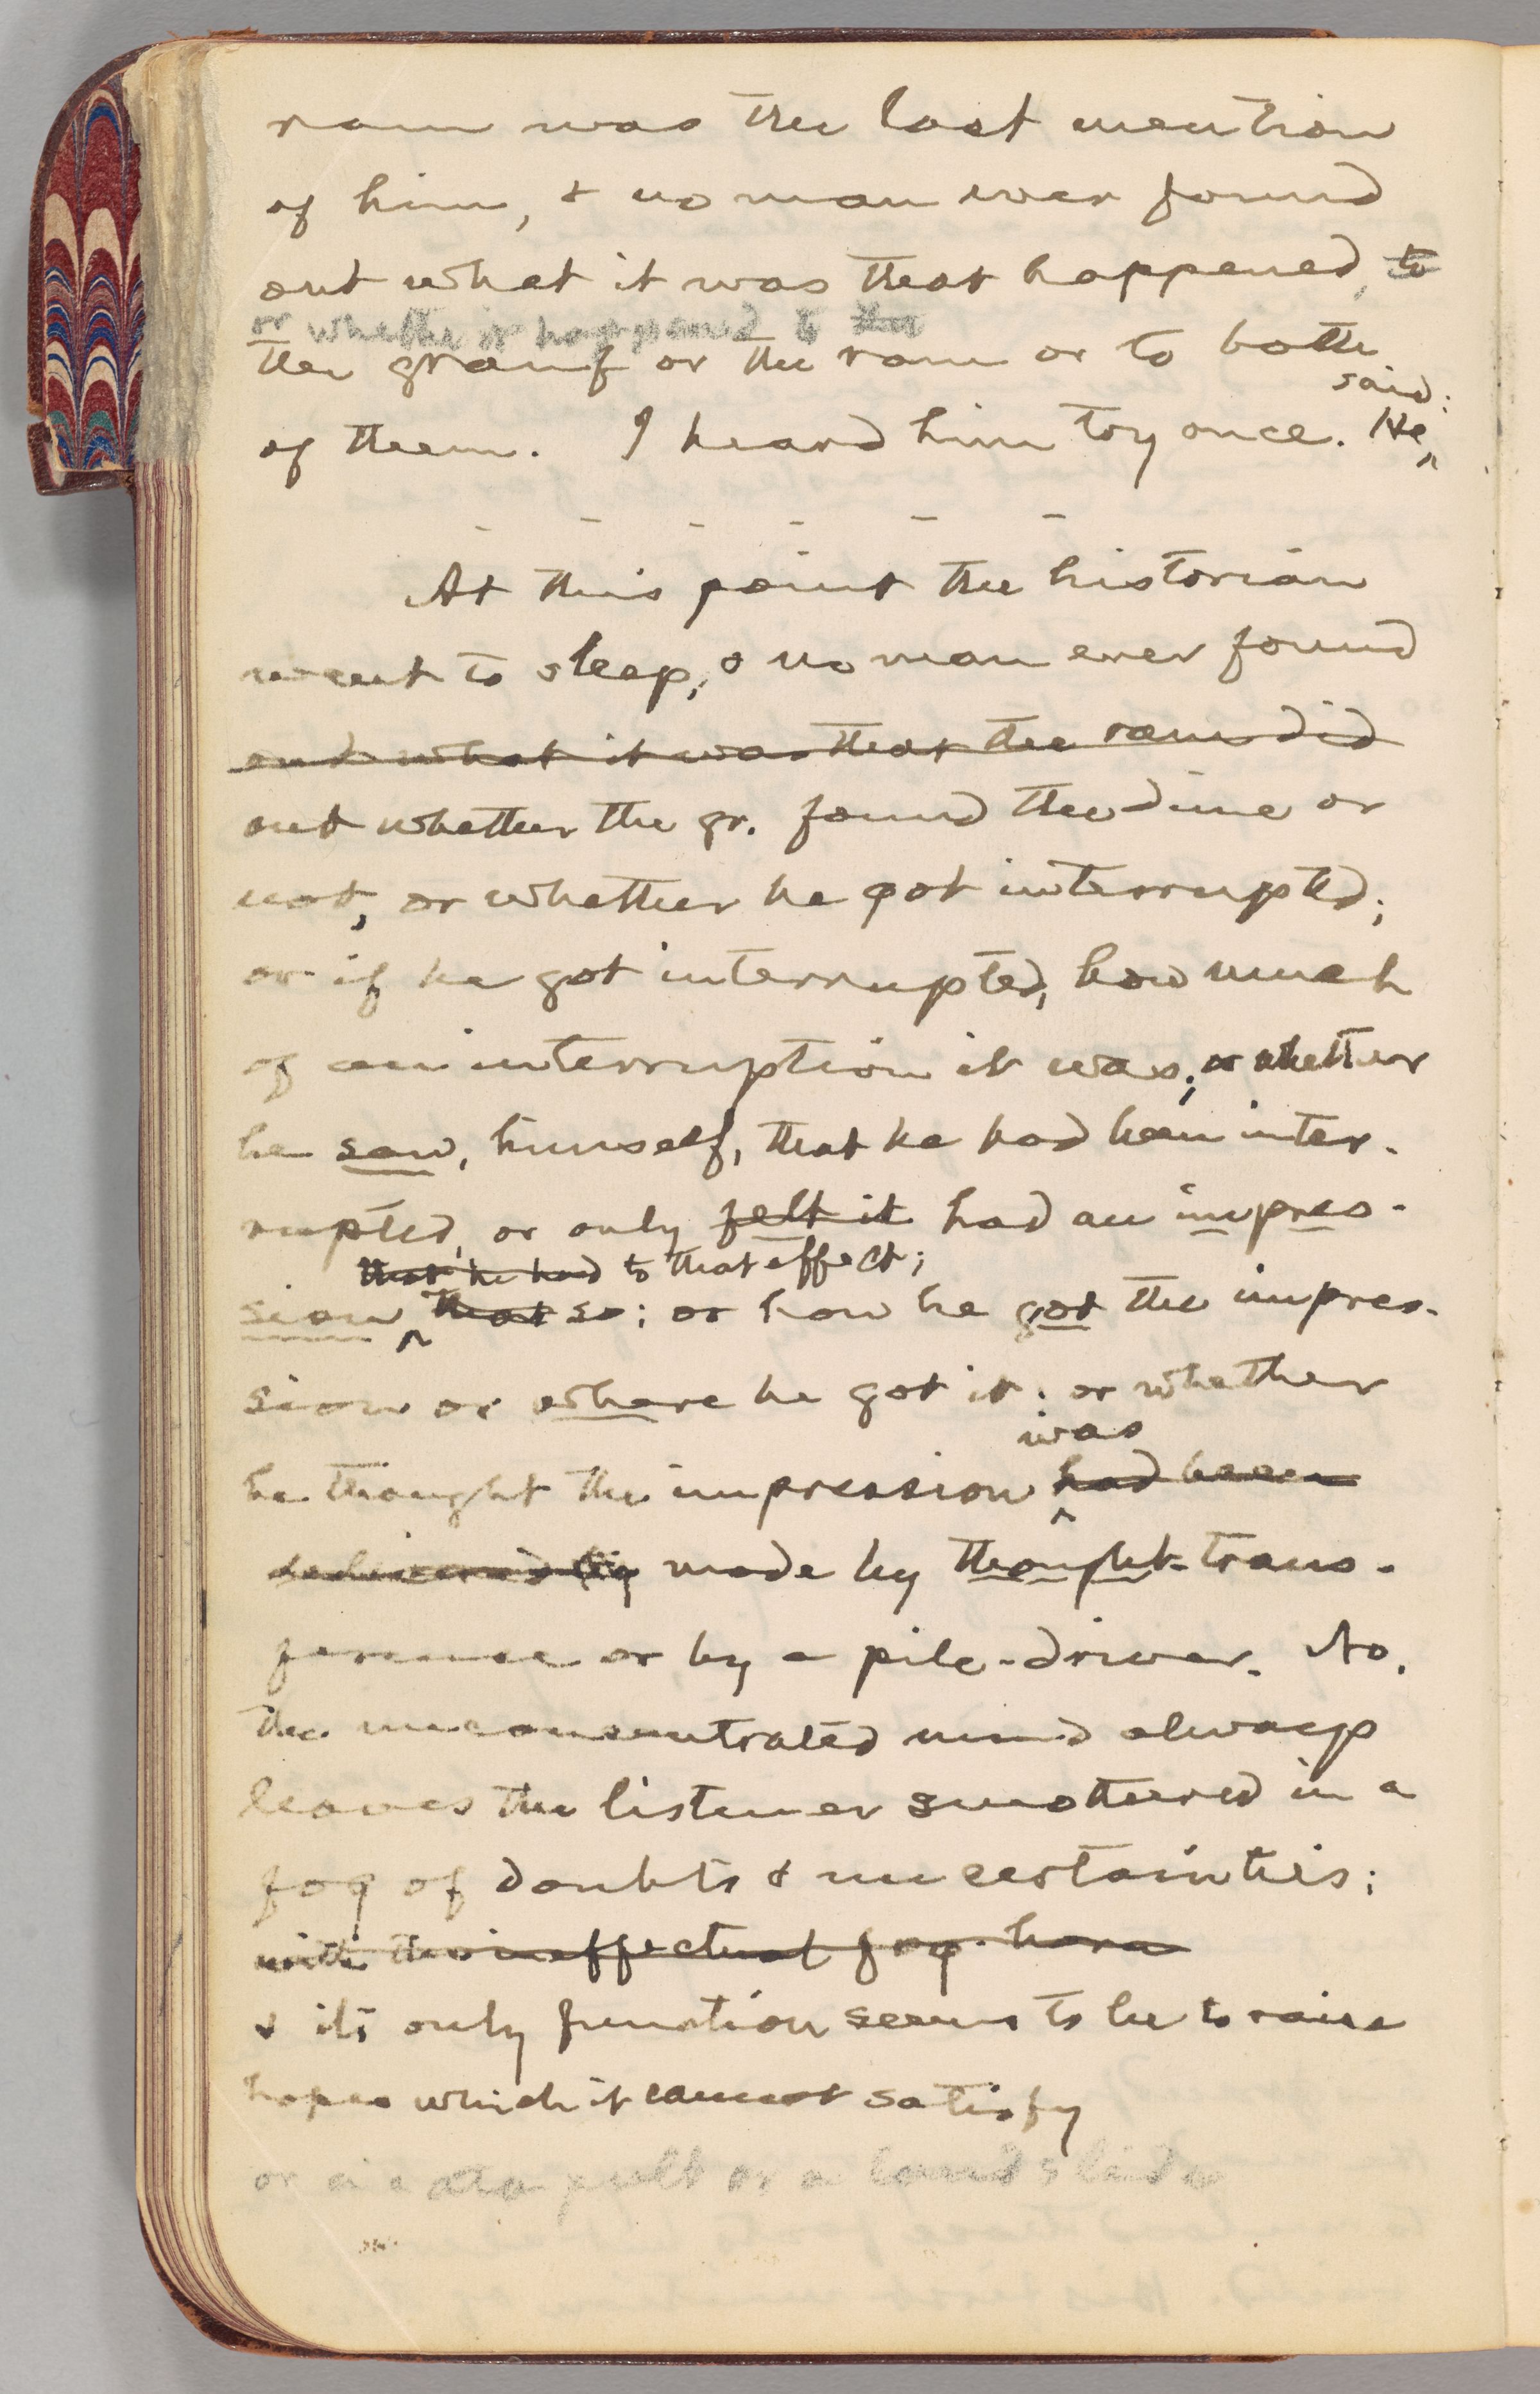 ram was the last mention
of him, & no man ever found
out what it was that happened, to
or whether it happened to the
the granf or the ram or to both
said:
of them. I heard him try once. He
- - - - - -
At this point the historian
went to sleep, & no man ever found
out what it was that the ram did
out whether the gr. found the dime or
not, or whether he got interrupted;
or if he got interrupted, how much
of an interruption it was; or whether
he saw, himself, that he had been inter-
rupted, or only felt it had an impres-
that he had to that effect;
sion that so; or how he got the impres-
sion or where he got it; or whether
was
he thought the impression had been
delivered by made by thought-trans-
ference or by a pile-driver. No,
the unconsentrated mind always
leaves the listener smothered in a
fog of doubts & uncertainties;
with the ineffectual fog-horn
& its only function seems to be to raise
hopes which it cannot satisfy
or a catapult or a landslide